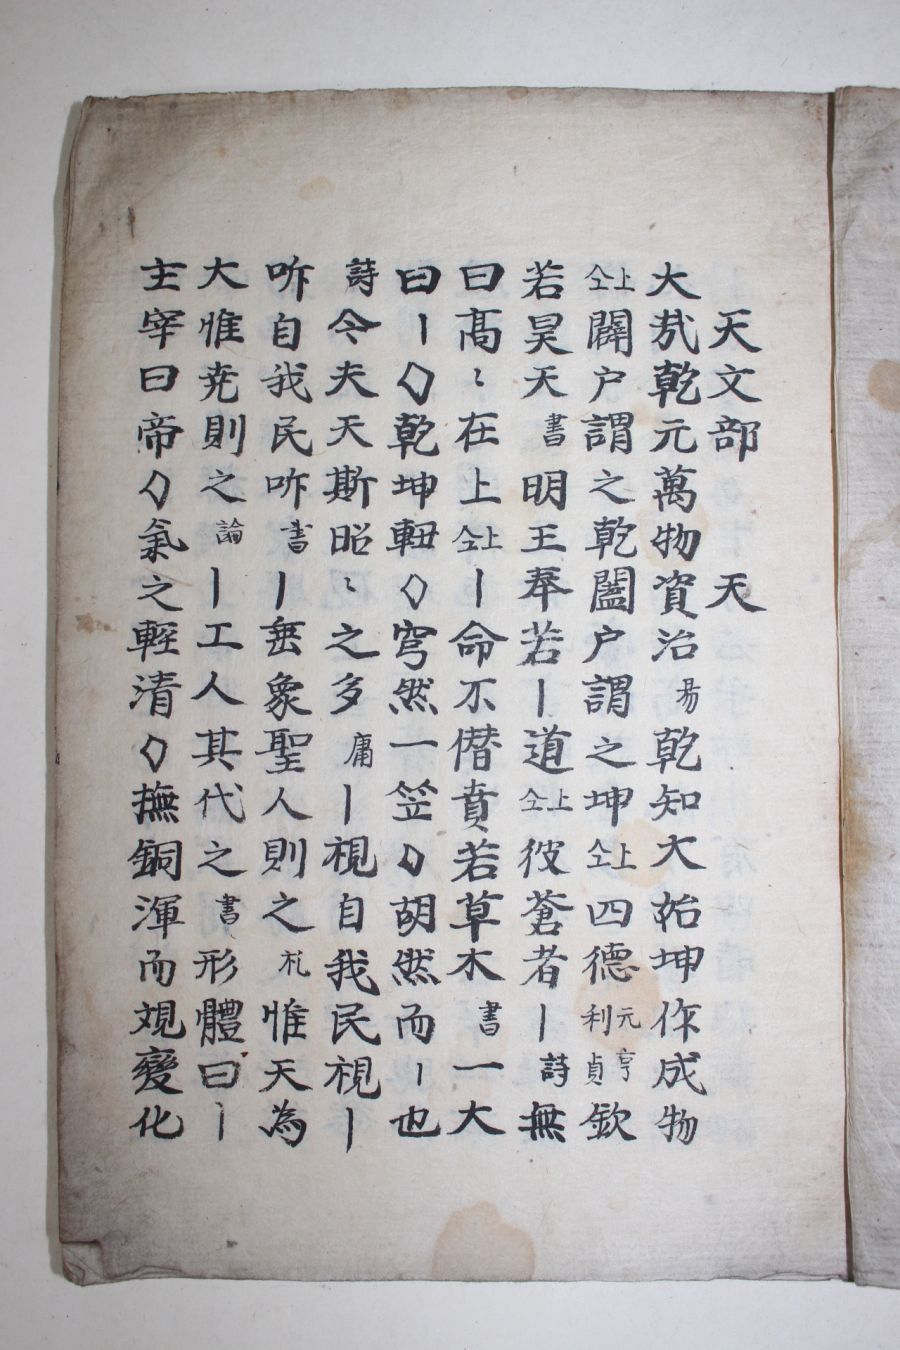 天文部　天
大㢤乾元萬物資治易乾知大始坤作成物
上仝闢户謂之乾闔户謂之坤上仝四德元亨利貞欽
若昊天書明王奉若丨道上仝彼蒼者丨詩無
曰高〻在上上仝丨命不僭賁若草木書一大
曰丨〇乾坤軽〇穹然一笠〇胡然而丨也
詩今夫天斯昭〻之多庸丨視自我民視丨
听自我民听書丨垂象聖人則之礼惟天為
大惟尭則之論丨工人其代之書形體曰丨
主宰曰帝〇氣之輕清〇撫銅渾而覌變化